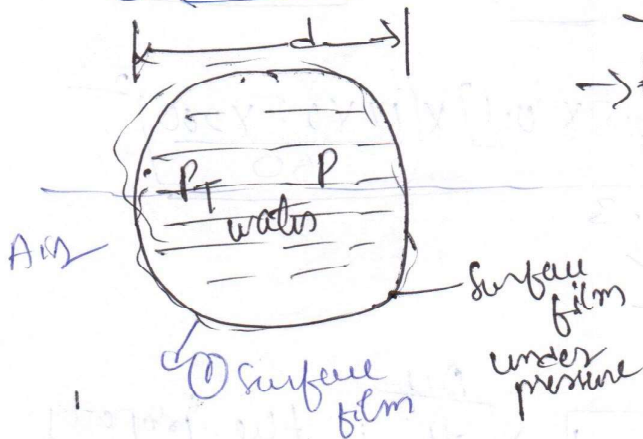 d
P_T P
water
Air
Surface
film
under
pressure
① Surface
film